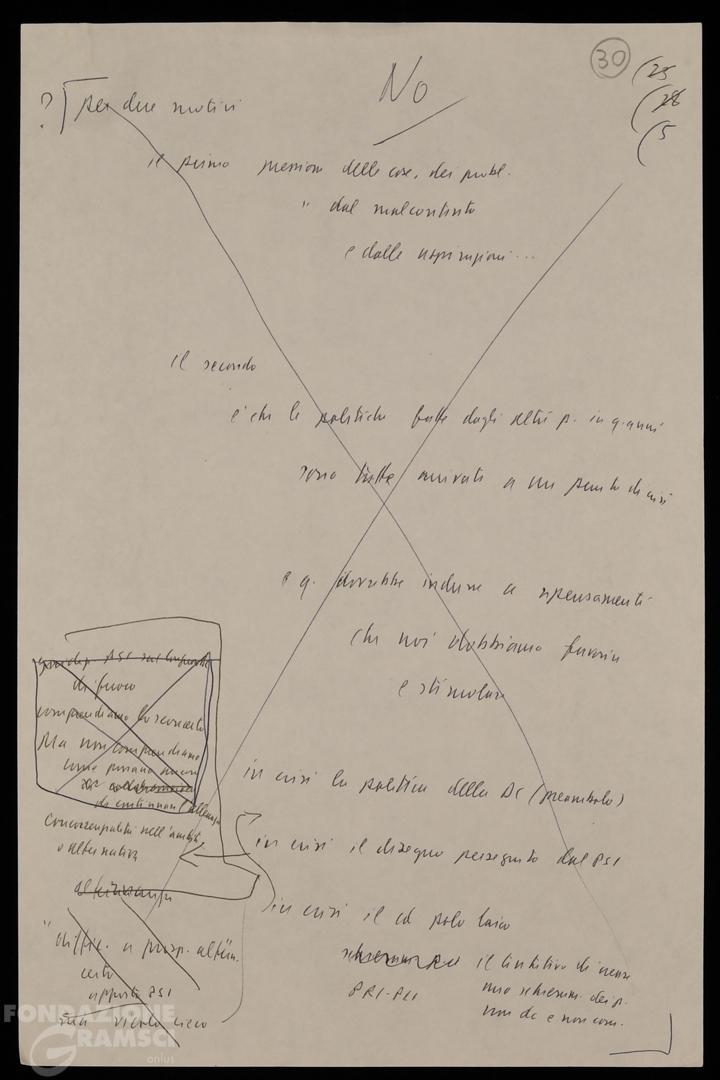 30
(25
(28
(5
No
? per due motivi
il primo pressione delle cose, dei probl.
" dal malcontento
e dalle aspirazioni...
il secondo
è che le politiche fatte dagli altri p. in q. anni
sono tutte arrivate a un punto di crisi
e q. dovrebbe indurre a ripensamenti
che noi dobbiamo favorire
e stimolare
in crisi la politica della DC (preambolo)
in crisi il disegno perseguito dal PSI
in crisi il cd polo laico
il tentativo di creare
PRI-PLI
uno schieram. dei p.
non dc e non com.
PSI
di fuoco
comprendiamo lo sconcerto
Ma non comprendiamo
come possano ancora
di continuare
Concorrenzialità nell'ambito
o alternativa
alternanza
" diffic. a prosp. altern.
certo
apporto PSI
sua vicolo cieco
FONDAZIONE
GRAMSCI
onlus